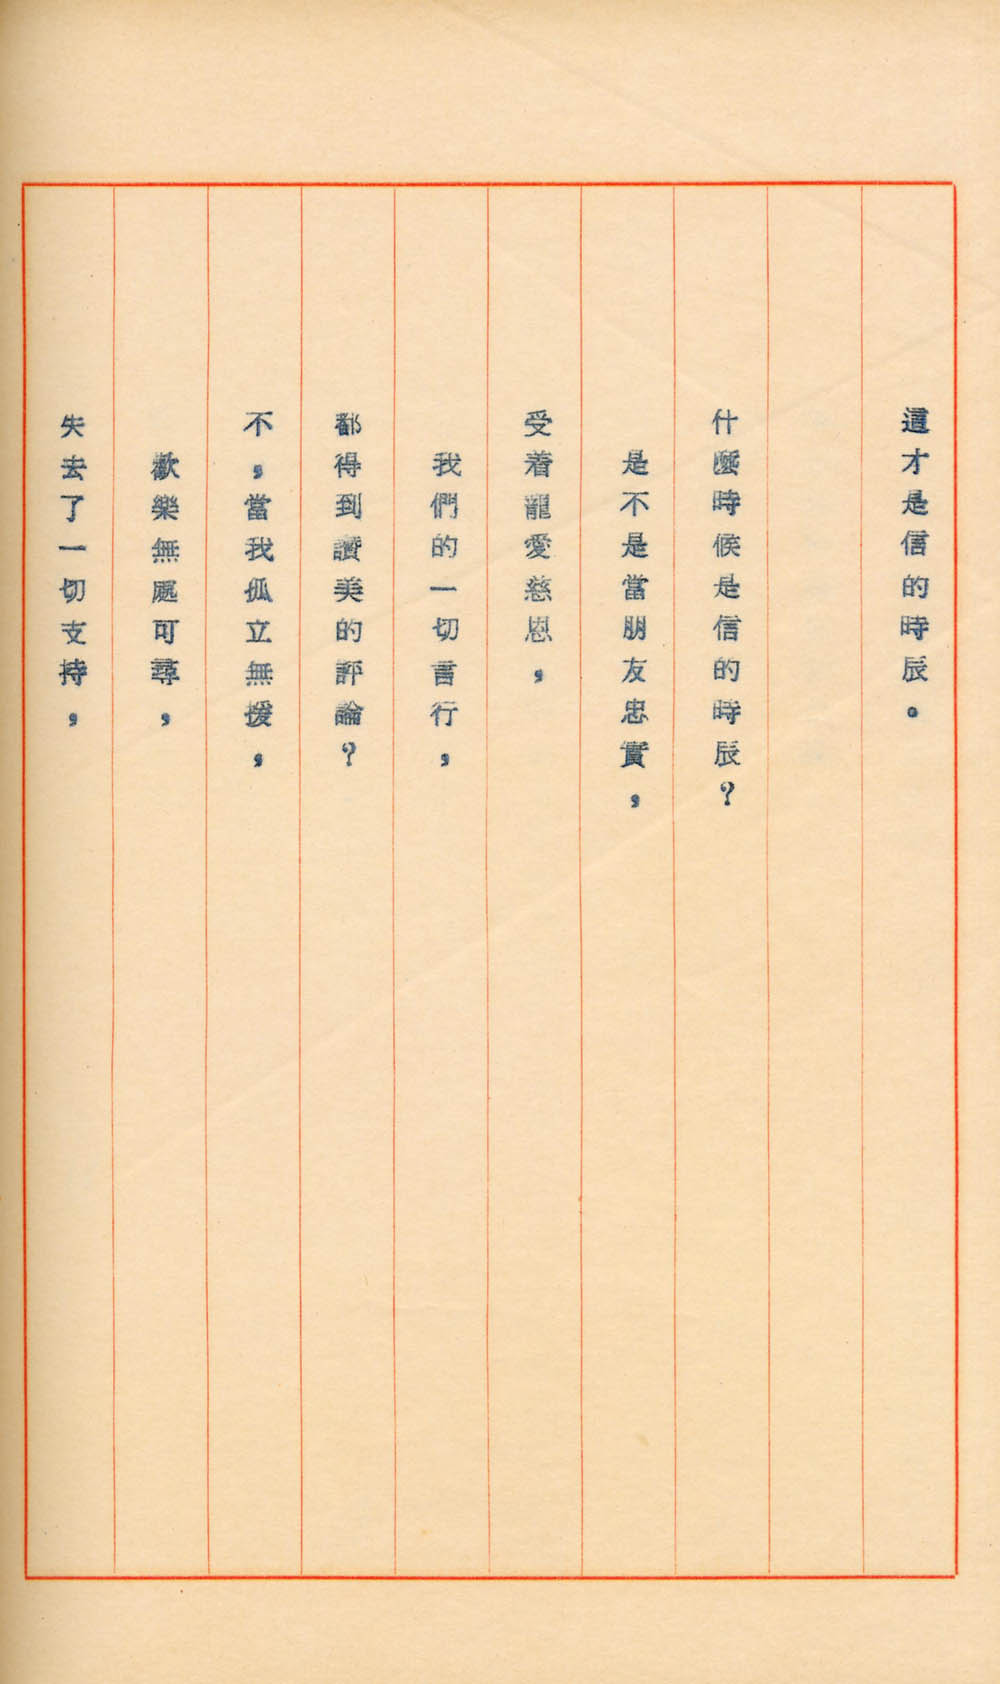 這才是信的時辰。
什麼時候是信的時辰?
是不是當朋友忠實,
受着寵愛慈恩,
我們的一切言行,
都得到讚美的評論?
不,當我孤立無援,
歡樂無處可尋,
失去了一切支持,